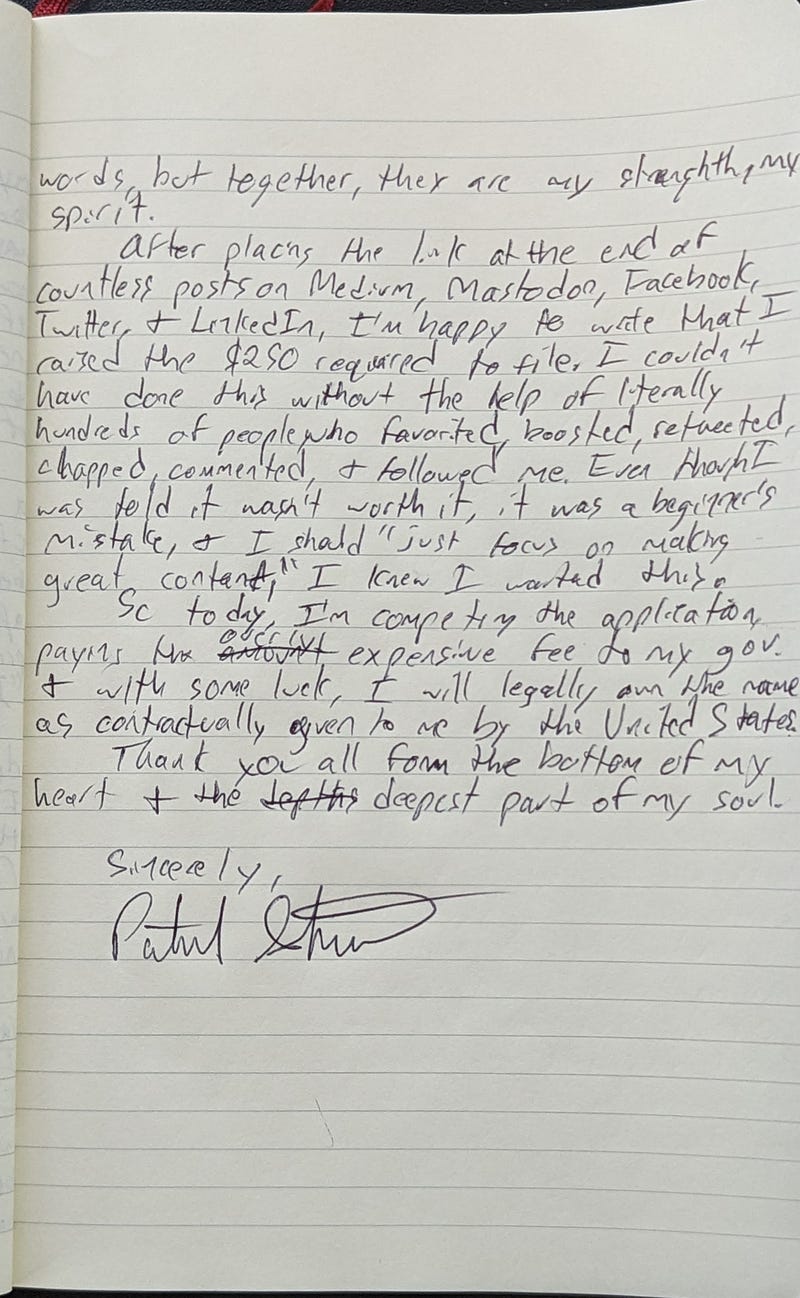 words, but together, they are my strenghth, my
spirit.
After placing the link at the end of
countless posts on Medium, Mastodon, Facebook,
Twitter, + LinkedIn, I'm happy to write that I
raised the $250 required to file. I couldn't
have done this without the help of literally
hundreds of people who favorited, boosted, retweeted,
clapped, commented, + followed me. Even though I
was told it wasn't worth it, it was a beginner's
mistake, + I should "just focus on making
great content," I knew I wanted this.
So today, I'm competing the application,
paying the expensive fee to my gov.
+ with some luck, I will legally own the name
as contractually given to me by the United States.
Thank you all form the bottom of my
heart + the depths deepest part of my soul.
Sincerely,